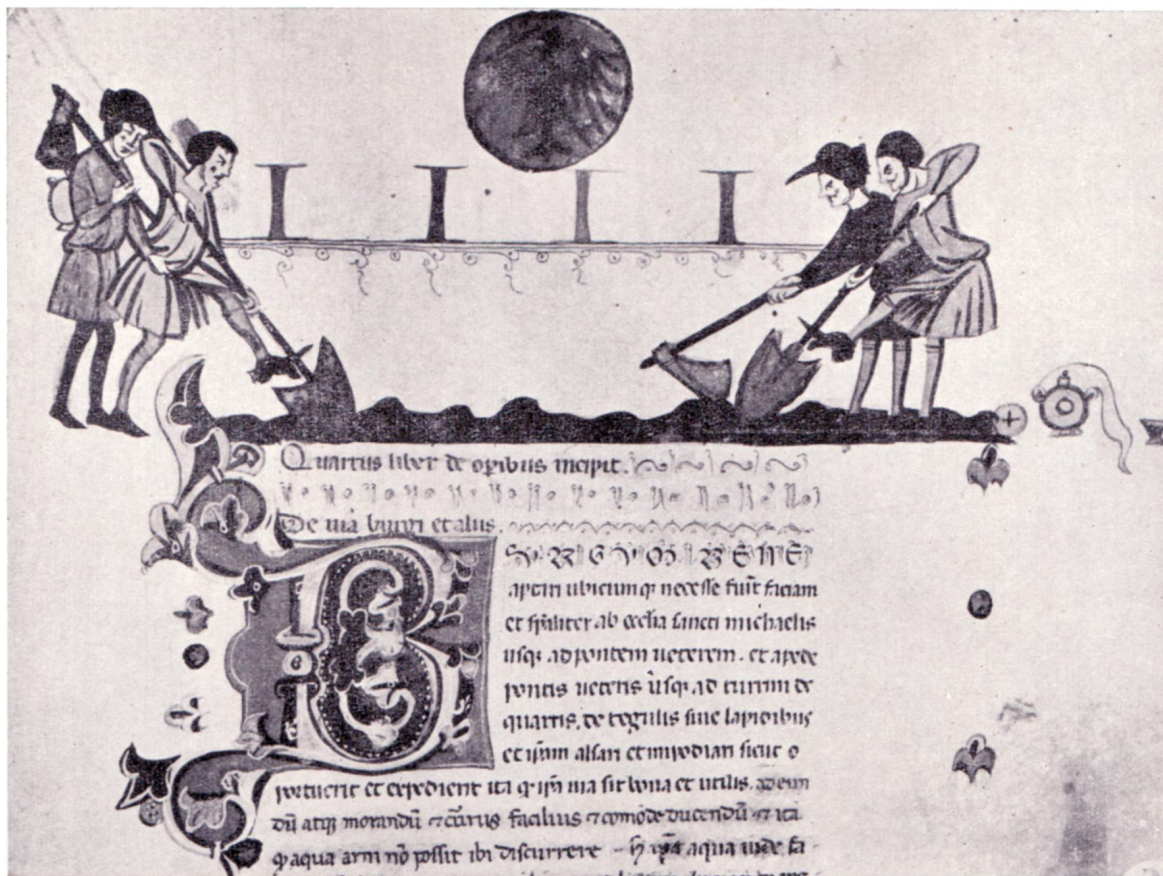 I I I I
Quartus liber de opibus incipit.
De uia burgi et aliis.
B VRGVM BENE
aptari ubicumq; necesse fuit faciam
et spāliter ab ecclia sancti michaelis
usq; ad pontem ueterem. et a pede
pontis ueteris usq; ad turrim de
quartis, de tegulis siue lapidibus
et ipam alsari et impodiari sicut o
portuerit et expedient ita q ipa uia sit bona et utilis. ad eun
dū atq; morandū ⁊ currus facilius ⁊ comode ducendū ⁊ ita
q aqua arni nō possit ibi discurrere aqua inde fa